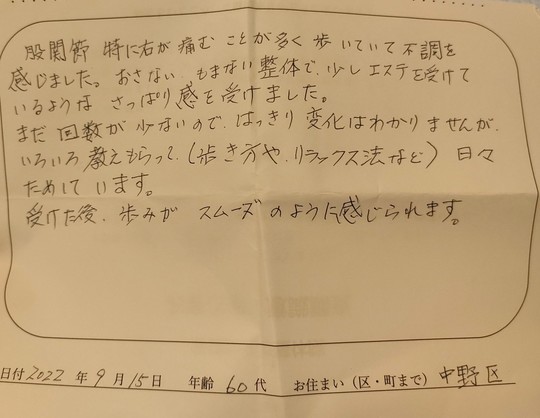 股関節 特に右が痛むことが多く歩いていて不調を
感じました。おさない、もまない整体で、少しエステを受けて
いるような さっぱり感を受けました。
まだ回数が少ないので、はっきり変化はわかりませんが、
いろいろ教えもらって、(歩き方や、リラックス法など) 日々
ためしています。
受けた後、歩みが スムーズのように感じられます。
日付 2022 年 9 月 15 日 年齢 60 代 お住まい(区・町まで) 中野区